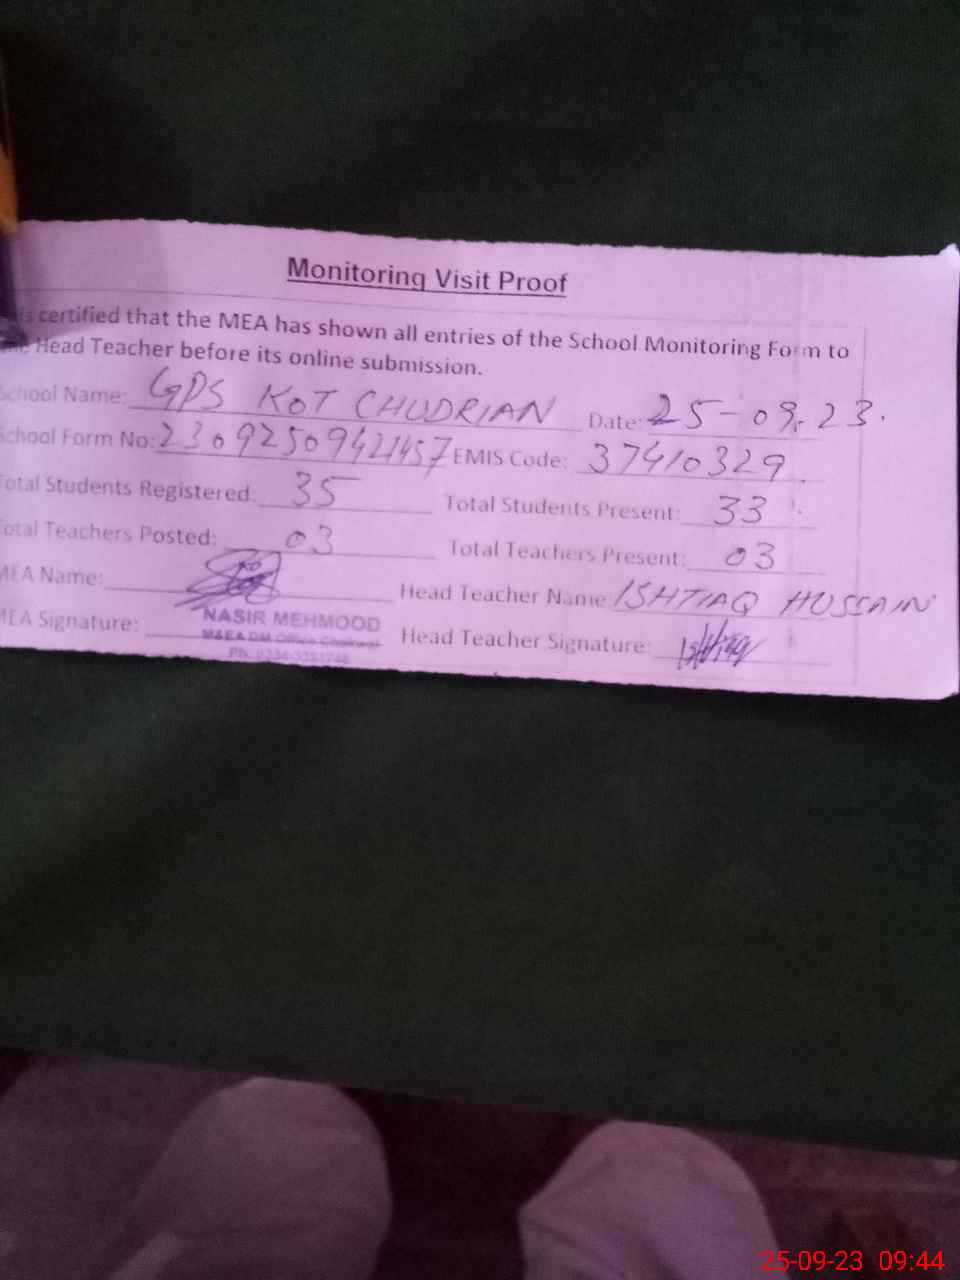 Monitoring Visit Proof
is certified that the MEA has shown all entries of the School Monitoring Form to
Head Teacher before its online submission.
School Name: GPS KOT CHUDRIAN Date: 25-09.23.
School Form No: 23092509421457 EMIS Code: 37410329
Total Students Registered: 35 Total Students Present: 33
Total Teachers Posted: 03 Total Teachers Present: 03
MEA Name: Head Teacher Name ISHTIAQ HUSSAIN
NASIR MEHMOOD
MEA Signature: M&EA DM Office Head Teacher Signature: Ishtiaq
Ph:
25-09-23 09:44